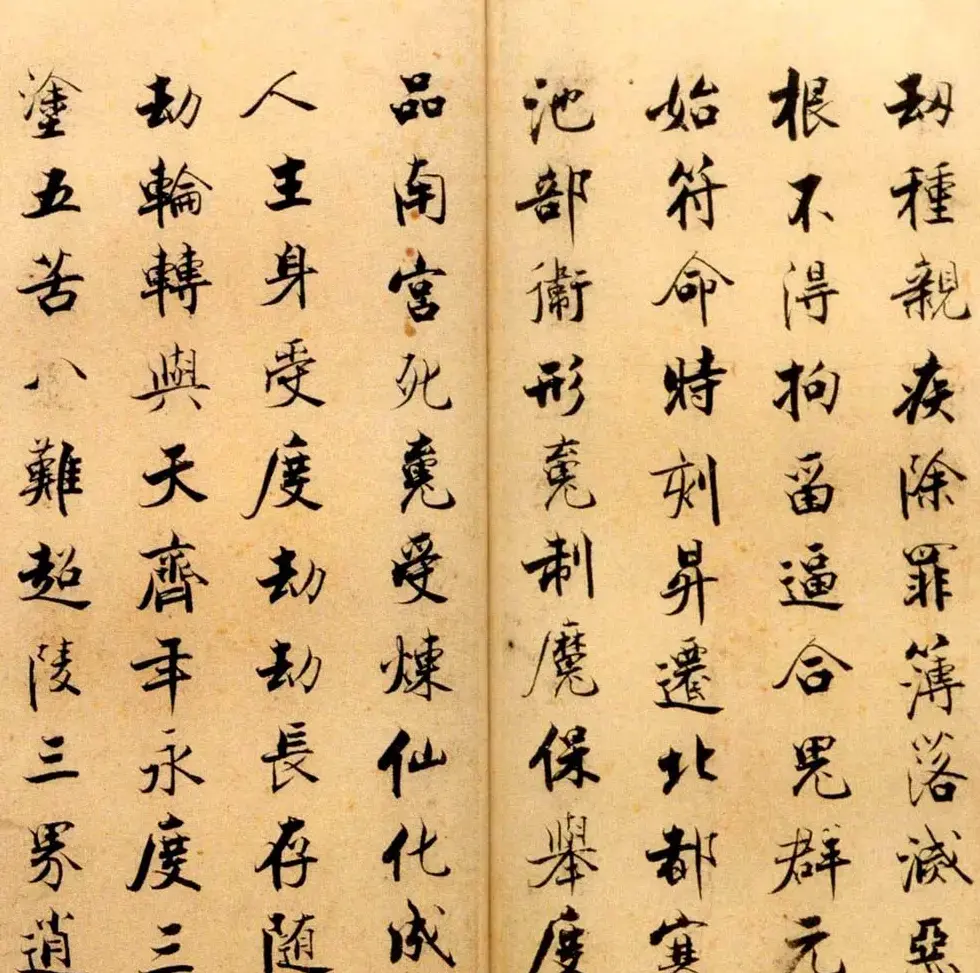 刧種親疾除罪簿落滅惡
根不得拘留逼合鬼群元
始符命時刻昇遷北都寒
池部衛形魂制魔保舉度
品南宮死魂受煉仙化成
人生身受度劫劫長存随
劫輪轉與天齊年永度三
塗五苦八難超陵三界逍